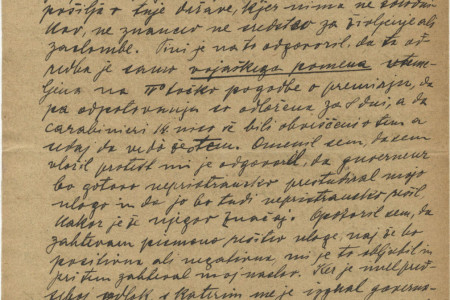 pošilja v tuje države, kjer nima ne sorodni-
kov, ne znancev ne sredstev za življenje ali
zaslombe. Pini je na to odgovoril, da ta od-
redba je samo vojaškega pomena uteme-
ljena na točko pogodbe o premirju, da
pa odpotovanje je odložena za 8 dni, a da
carabinieri niso še bili obveščeni o tem a
sedaj da vedo o tem. Omenil sem, da sem
vložil protest mi je odgovoril, da guverneur
bo gotovo nepristransko preštudiral mojo
vlogo in da jo bo tudi nepristransko rešil
kakor je že njegov značaj. Opozoril sem, da
zahtevam pismeno rešitev vloge, naj že bo
pozitivna ali negativna, mi je to obljubil in
pri tem zahteval moj naslov. Ker je imel pred
seboj odlok s katerim me je izgnal guverne-